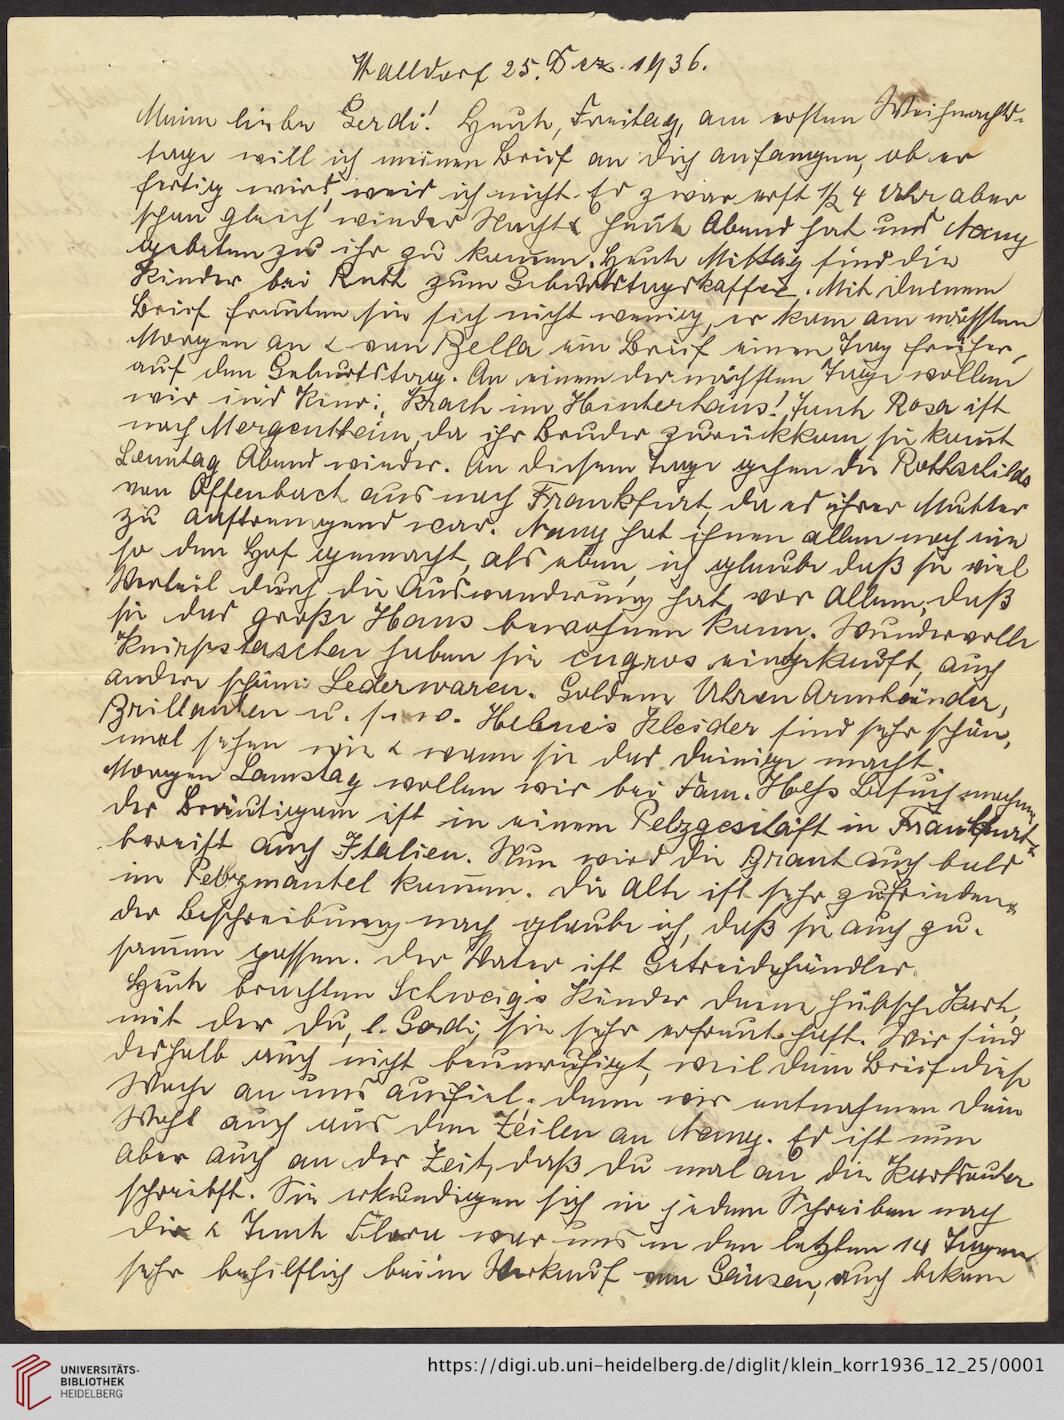 Walldorf 25. Dez. 1936.
Meine liebe Gerdi! Heute, Freitag, am ersten Weihnachts-
tage will ich meinen Brief an dich anfangen, ob er
fertig wird, weis ich nicht. Es zwar erst ½ 4 Uhr aber
schon gleich wieder Nacht & heute Abend hat uns Nany
gebeten zu ihr zu kommen. Heute Mittag sind die
Kinder bei Ruth zum Geburtstagskaffee. Mit deinem
Brief freuten sie sich nicht wenig, er kam am nächsten
Morgen an & von Bella ein Brief einen Tag früher,
auf den Geburtstag. An einem der nächsten Tage wollen
wir ins Kino: Krach im Hinterhaus! Tante Rosa ist
nach Mergentheim, da ihr Bruder zurückkam, sie kommt
Sonntag Abend wieder. An diesem Tage gehen die Rothschilds
von Offenbach aus nach Frankfurt, da es ihrer Mutter
zu anstrengend war. Nany hat ihnen allen noch nie
so den Hof gemacht, als eben, ich glaube daß sie viel
Vorteil durch die Auswanderung hat, vor Allem, daß
sie das große Haus bewohnen kann. Wundervolle
Knirpstaschen haben sie engros eingekauft, auch
andere schöne Lederwaren. Goldene Uhren Armbänder,
Brillanten u. s. w. Helene's Kleider sind sehr schön,
mal sehen wie & wann sie das deinige macht.
Morgen Samstag wollen wir bei Fam. Heß Besuch machen,
der Bräutigam ist in einem Pelzgeschäft in Frankfurt &
bereist auch Italien. Nun wird die Braut auch bald
im Pelzmantel kommen. Die Alte ist sehr zufrieden &
der Beschreibung nach glaube ich, daß sie auch zu-
sammen passen. Der Vater ist Getreidehändler.
Heute brachten Schweig's Kinder deine hübsche Karte,
mit der du, l. Gerdi, sie sehr erfreut hast. Wir sind
deshalb auch nicht beunruhigt, weil dein Brief diese
Woche an uns ausfiel, denn wir entnahmen dein
Wohl auch aus den Zeilen an Nany. Es ist nun
aber auch an der Zeit, daß du mal an die Karlsruher
schreibst. Sie erkundigen sich in jedem Schreiben nach
dir & Tante Flora war uns in den letzten 14 Tagen
sehr behilflich beim Verkauf von Gänsen, auch bekam
UNIVERSITÄTS-
BIBLIOTHEK
HEIDELBERG
https://digi.ub.uni-heidelberg.de/diglit/klein_korr1936_12_25/0001